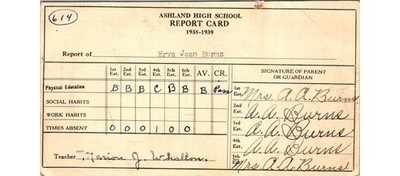 614
ASHLAND HIGH SCHOOL
REPORT CARD
1938-1939
Report of Erva Jean Burns
1st Est. 2nd Est. 3rd Est. 4th Est. 5th Est. 6th Est. AV. CR.
SIGNATURE OF PARENT OR GUARDIAN
Physical Education B B B C B B B Pass
SOCIAL HABITS
WORK HABITS
TIMES ABSENT 0 0 0 1 0 0
Teacher Marion J. Whallon.
1st Est. Mrs A. A. Burns
2nd Est. A. A. Burns
3rd Est. A. A. Burns
4th Est. A. A. Burns
5th Est. Mrs A. A. Burns